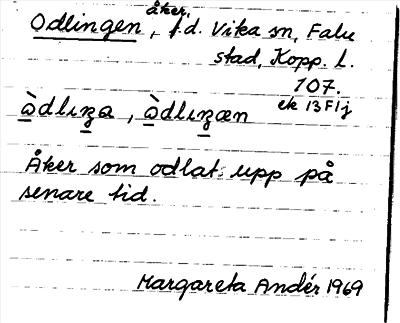 åker,
Odlingen, f.d. Vika sn, Falu
stad, Kopp. l.
107.
ek 13F1j
ò̱dlıʒa, ò̱dlıʒæn
Åker som odlats upp på
senare tid.
Margareta Andér 1969